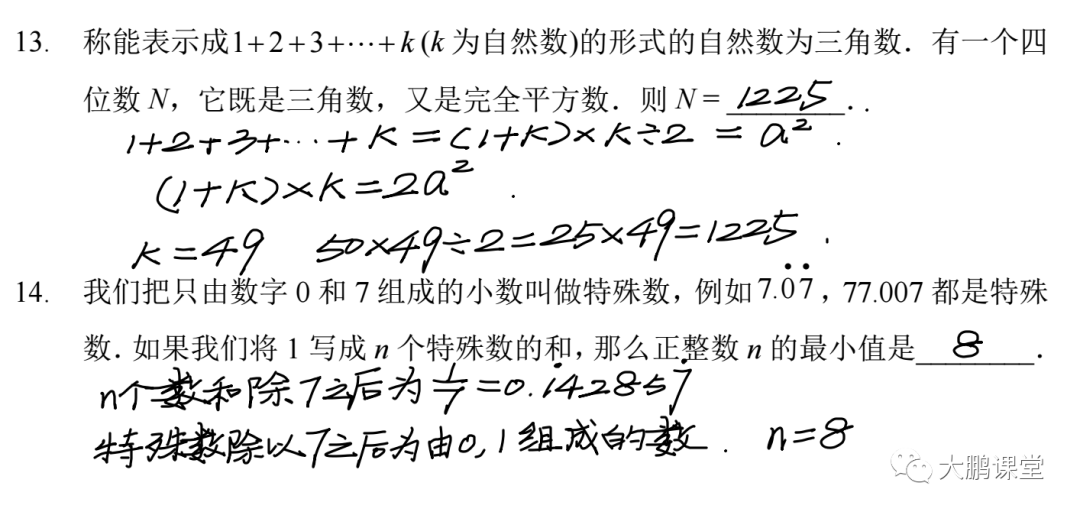 13. 称能表示成1+2+3+⋯+k(k为自然数)的形式的自然数为三角数．有一个四
位数N，它既是三角数，又是完全平方数．则N= 1225 ．.
1+2+3+⋯+K=(1+K)×K÷2=a².
(1+K)×K=2a².
K=49 50×49÷2=25×49=1225.
14. 我们把只由数字0和7组成的小数叫做特殊数，例如7.0̇7̇，77.007都是特殊
数．如果我们将1写成n个特殊数的和，那么正整数n的最小值是 8 ．
n个数和除7之后为1/7=0.1̇42857̇
特殊数除以7之后为由0,1组成的数. n=8
大鹏课堂